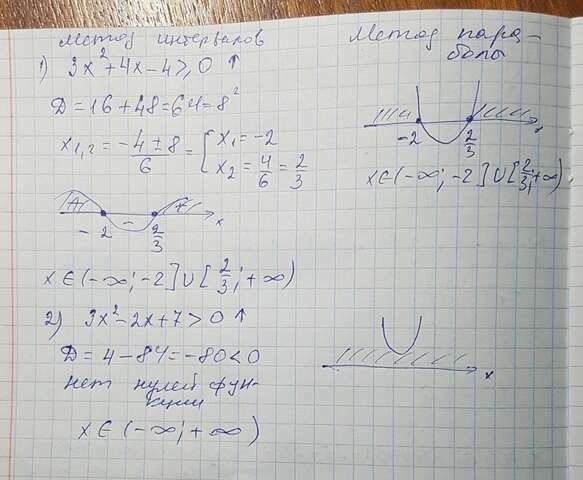 Метод интервалов
1) 3x²+4x-4≥0 ↑
D=16+48=64=8²
x₁,₂ = (-4±8)/6 = { x₁=-2
x₂=4/6=2/3
+ - + x
-2 2/3
x∈(-∞;-2]∪[2/3;+∞)
2) 3x²-2x+7>0 ↑
D=4-84=-80<0
нет нулей фун-
кции
x∈(-∞;+∞)
Метод пара-
болы
-2 2/3 x
x∈(-∞;-2]∪[2/3;+∞)
x